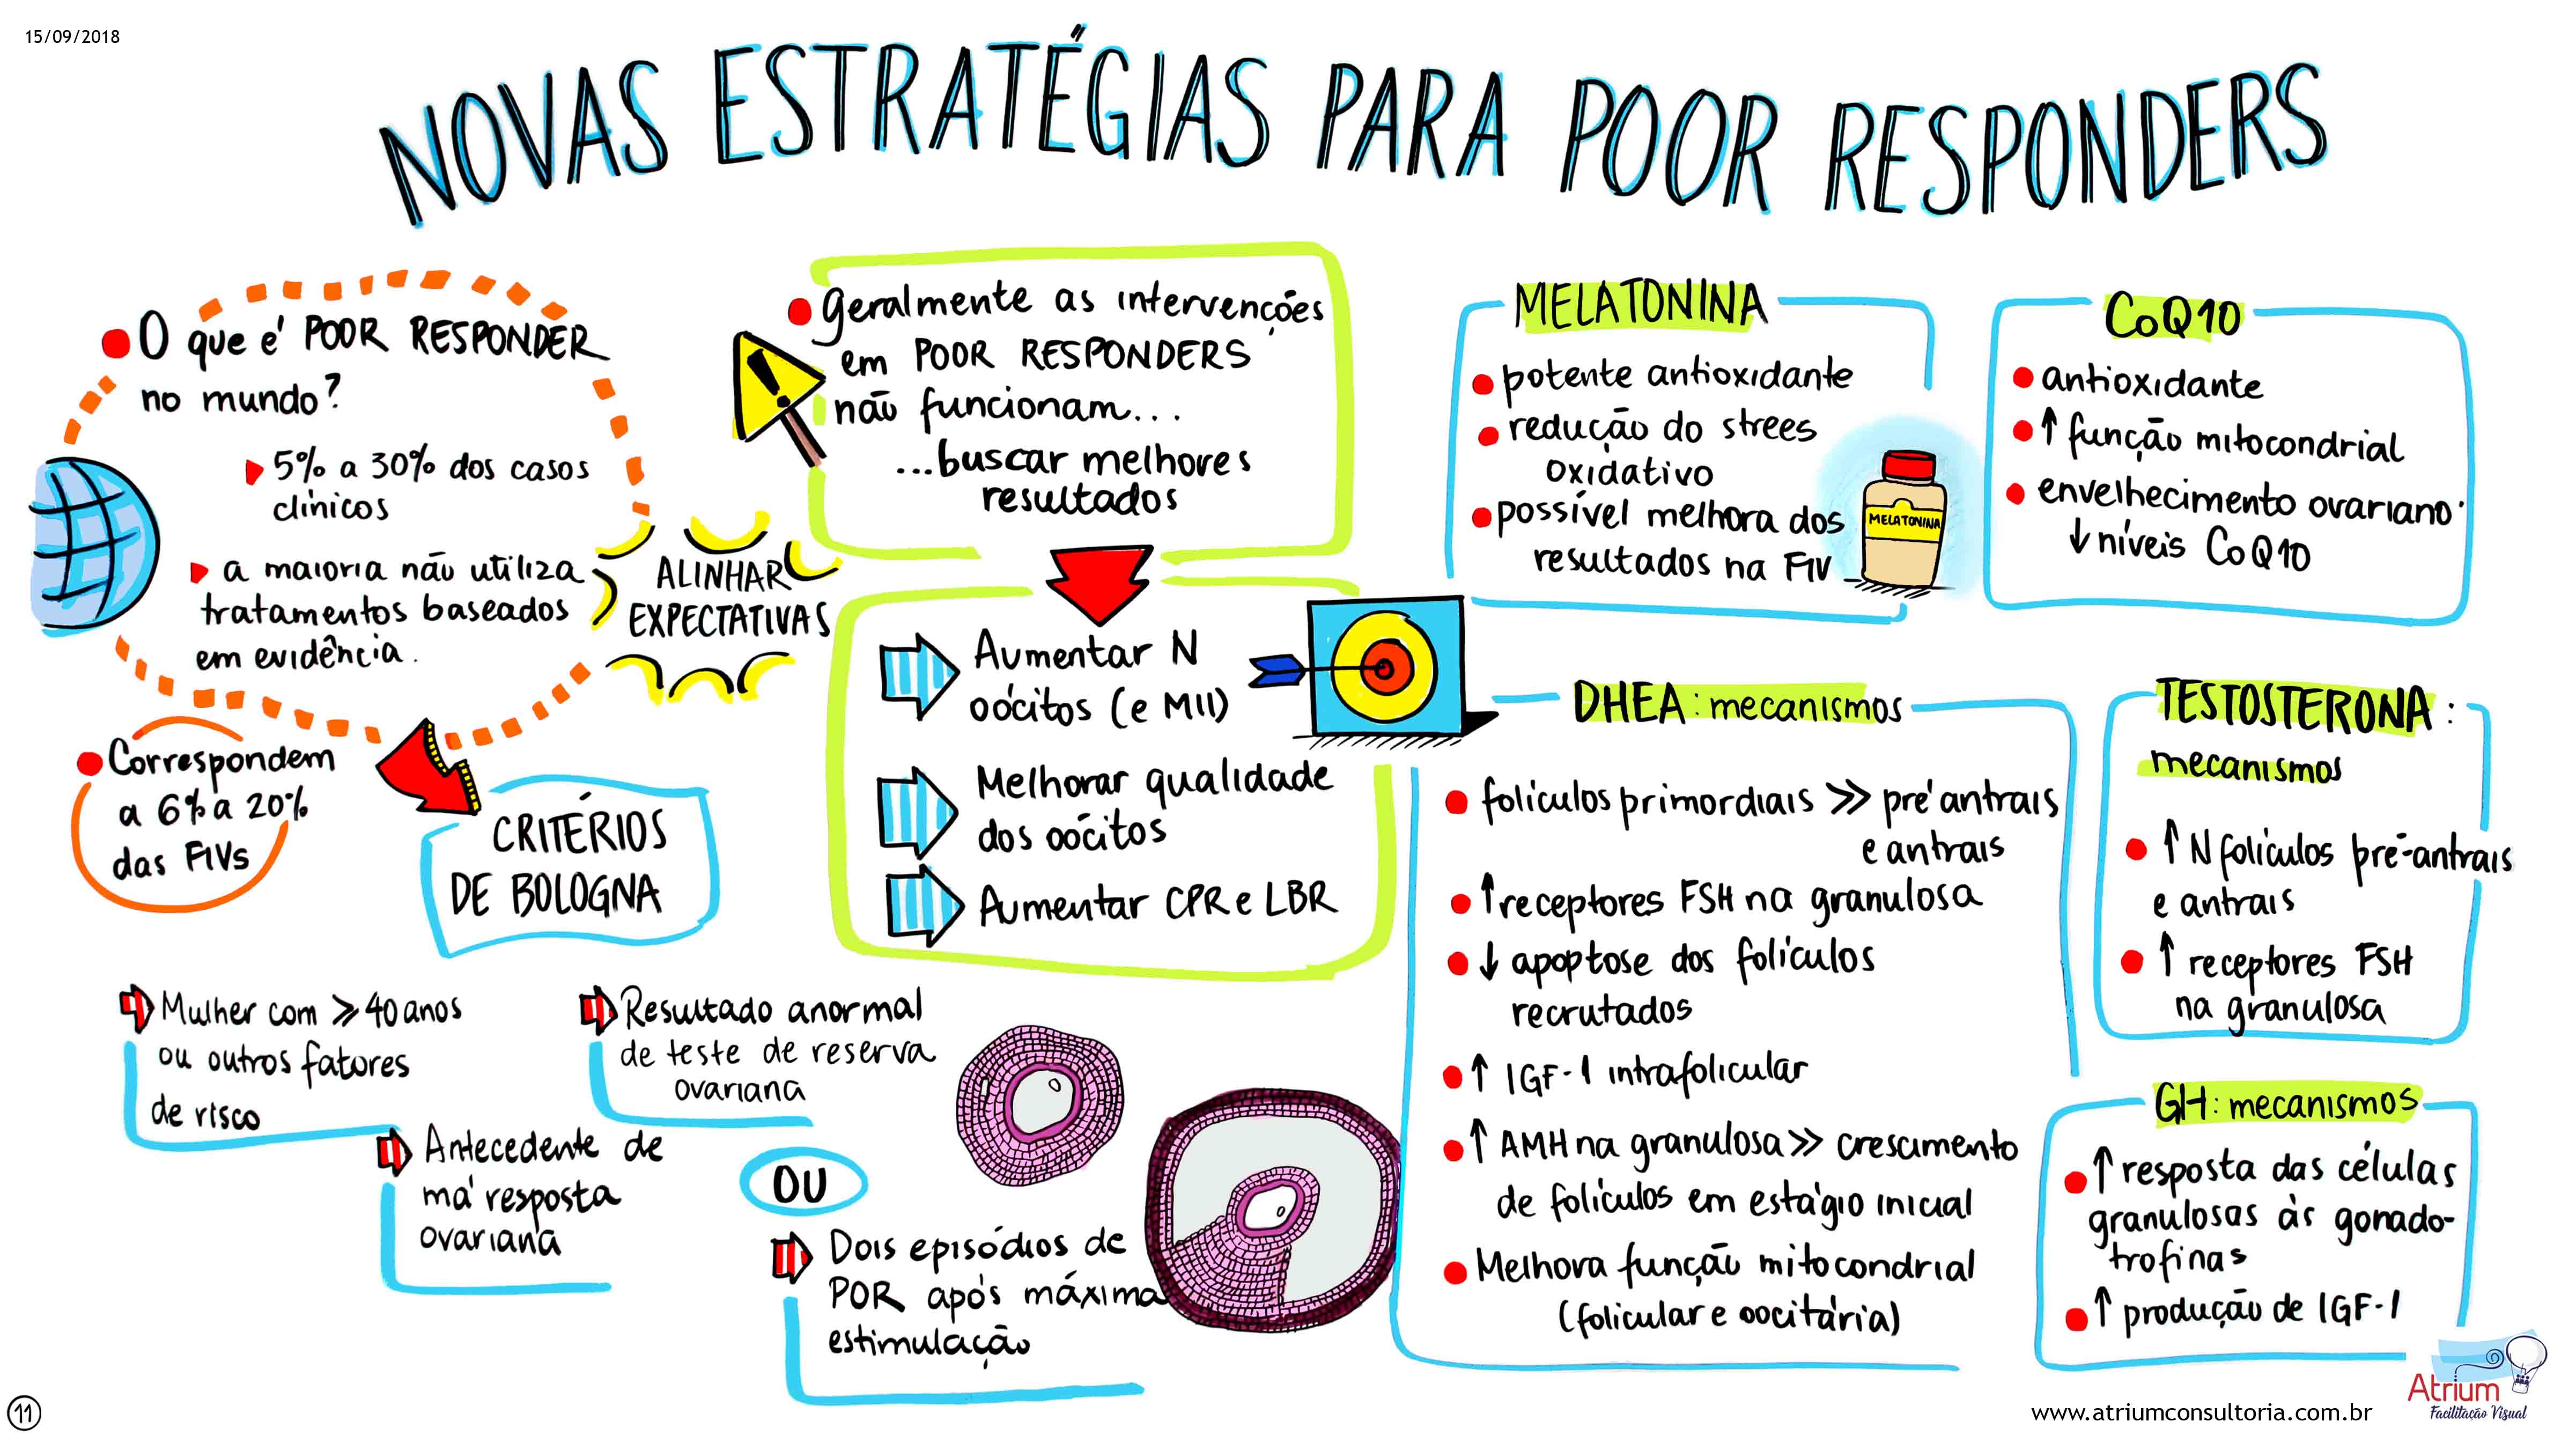 15/09/2018
NOVAS ESTRATÉGIAS PARA POOR RESPONDERS
O que é POOR RESPONDER
no mundo?
5% a 30% dos casos
clínicos
a maioria não utiliza
tratamentos baseados
em evidência.
ALINHAR
EXPECTATIVAS
Correspondem
a 6% a 20%
das FIVs
CRITÉRIOS
DE BOLOGNA
Mulher com ≥ 40 anos
ou outros fatores
de risco
Antecedente de
má resposta
ovariana
Resultado anormal
de teste de reserva
ovariana
OU
Dois episódios de
POR após máxima
estimulação
geralmente as intervenções
em POOR RESPONDERS
não funcionam...
...buscar melhores
resultados
Aumentar N
oócitos (e MII)
Melhorar qualidade
dos oócitos
Aumentar CPR e LBR
MELATONINA
potente antioxidante
redução do strees
oxidativo
possível melhora dos
resultados na FIV
MELATONINA
CoQ10
antioxidante
↑ função mitocondrial
envelhecimento ovariano:
↓ níveis CoQ10
DHEA: mecanismos
folículos primordiais >> pré antrais
e antrais
↑ receptores FSH na granulosa
↓ apoptose dos folículos
recrutados
↑ IGF-1 intrafolicular
↑ AMH na granulosa >> crescimento
de folículos em estágio inicial
Melhora função mitocondrial
(folicular e oocitária)
TESTOSTERONA:
mecanismos
↑ N folículos pré-antrais
e antrais
↑ receptores FSH
na granulosa
GH: mecanismos
↑ resposta das células
granulosas às gonado-
trofinas
↑ produção de IGF-1
11
www.atriumconsultoria.com.br
Atrium
Facilitação Visual